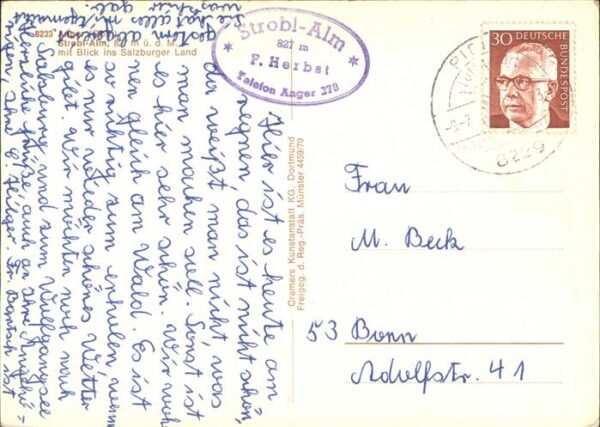 8233
Strobl-Alm, 827 m ü. d. M.
mit Blick ins Salzburger Land
* Strobl-Alm *
827 m
F. Herbst
Telefon Anger 270
30 DEUTSCHE BUNDESPOST
8229
Cramers Kunstanstalt KG, Dortmund
Freigeg. d. Reg.-Präs. Münster 4459/70
Hier ist es heute am
regnen, das ist nicht schön,
da weißt man nicht, was
man machen soll. Sonst ist
es hier sehr schön. Wir woh
nen gleich am Wald. Es ist
so richtig zum erholen, wenn
es nur wieder schönes Wetter
gibt. Wir möchten noch nach
Salzburg und zum Wolfgangsee
Herzliche Grüße auch an Ihre
Ihre E. Hilger. Fr. Bartsch ist
gestern allein
sie hat alles
was hier
Frau
M. Beck
53 Bonn
Adolfstr. 41